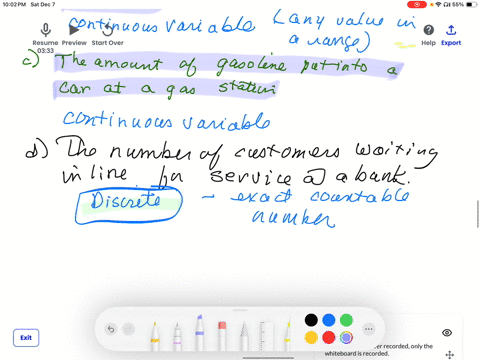 10:02 PM Sat Dec 7
55%
continuous variable (any value in a range)
Resume
03:33
Preview
Start Over
Help
Export
c) The amount of gasoline put into a
car at a gas station
continuous variable
d) The number of customers waiting
in line for service @ a bank.
Discrete - exact countable
number
Exit
er recorded, only the
whiteboard is recorded.